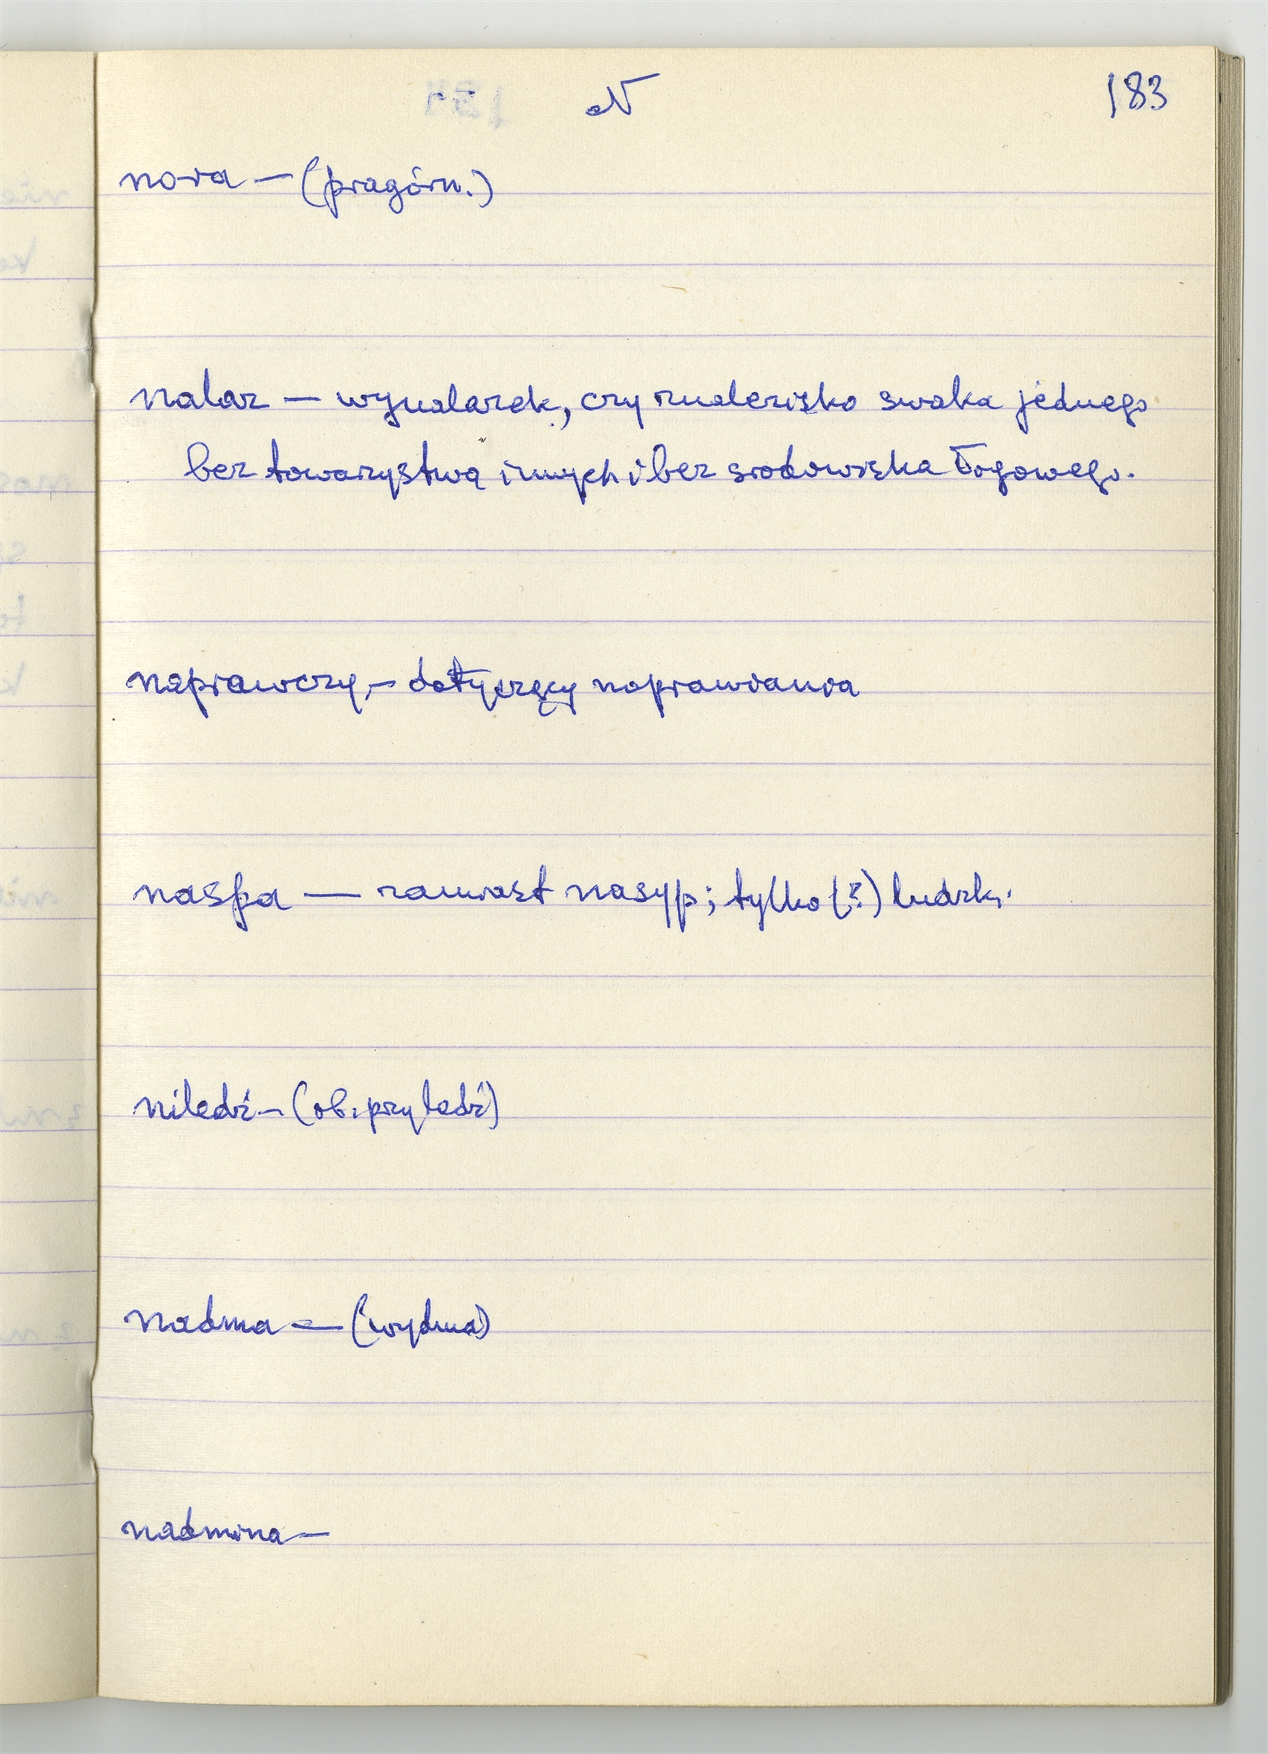 N 183
nora — (pragórn.)
nalaz — wynalazek, czy znalezisko swaka jednego
bez towarzystwa innych i bez srodowiska łogowego.
naprawczy — dotyczący naprawiania
naspa — zamiast nasyp; tylko (?) ludzki
niledź — (ob. przyledź)
nadma — (wydma)
nadmina —